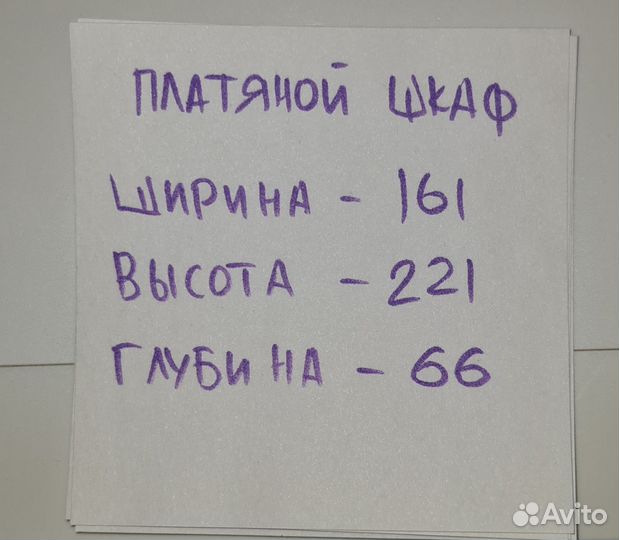 ПЛАТЯНОЙ ШКАФ
ШИРИНА - 161
ВЫСОТА - 221
ГЛУБИНА - 66
Avito